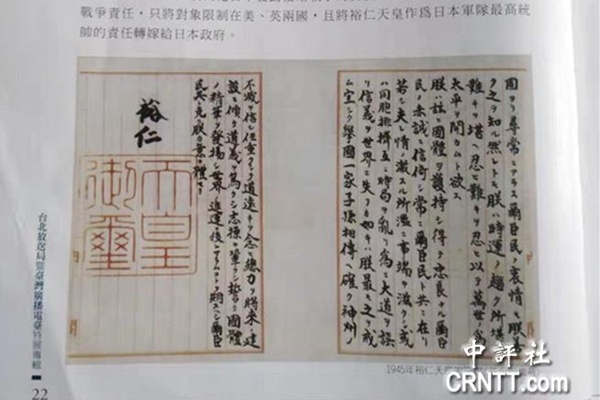 戰爭責任，只將對象限制在美、英兩國，且將裕仁天皇作爲日本軍隊最高統
帥的責任轉嫁給日本政府。
固ヨリ尋常ニアラス爾臣民ノ衷情モ朕善
ク之ヲ知ル然レトモ朕ハ時運ノ趨ク所堪ヘ
難キヲ堪ヘ忍ヒ難キヲ忍ヒ以テ萬世ノ爲ニ
太平ヲ開カムト欲ス
朕ハ茲ニ國體ヲ護持シ得テ忠良ナル爾臣
民ノ赤誠ニ信倚シ常ニ爾臣民ト共ニ在リ
若シ夫レ情ノ激スル所濫ニ事端ヲ滋クシ或
ハ同胞排擠互ニ時局ヲ亂リ爲ニ大道ヲ誤
リ信義ヲ世界ニ失フカ如キハ朕最モ之ヲ戒
ム宜シク擧國一家子孫相傳ヘ確ク神州ノ
不滅ヲ信シ任重クシテ道遠キヲ念ヒ總力ヲ將來ノ建
設ニ傾ケ道義ヲ篤クシ志操ヲ鞏クシ誓テ國體
ノ精華ヲ發揚シ世界ノ進運ニ後レサラムコトヲ期スヘシ爾臣
民其レ克ク朕カ意ヲ體セヨ
裕仁
天皇
御璽
1945年裕仁天皇
台北放送局暨臺灣廣播電臺特展專輯
22
中評社
CRNTT.com